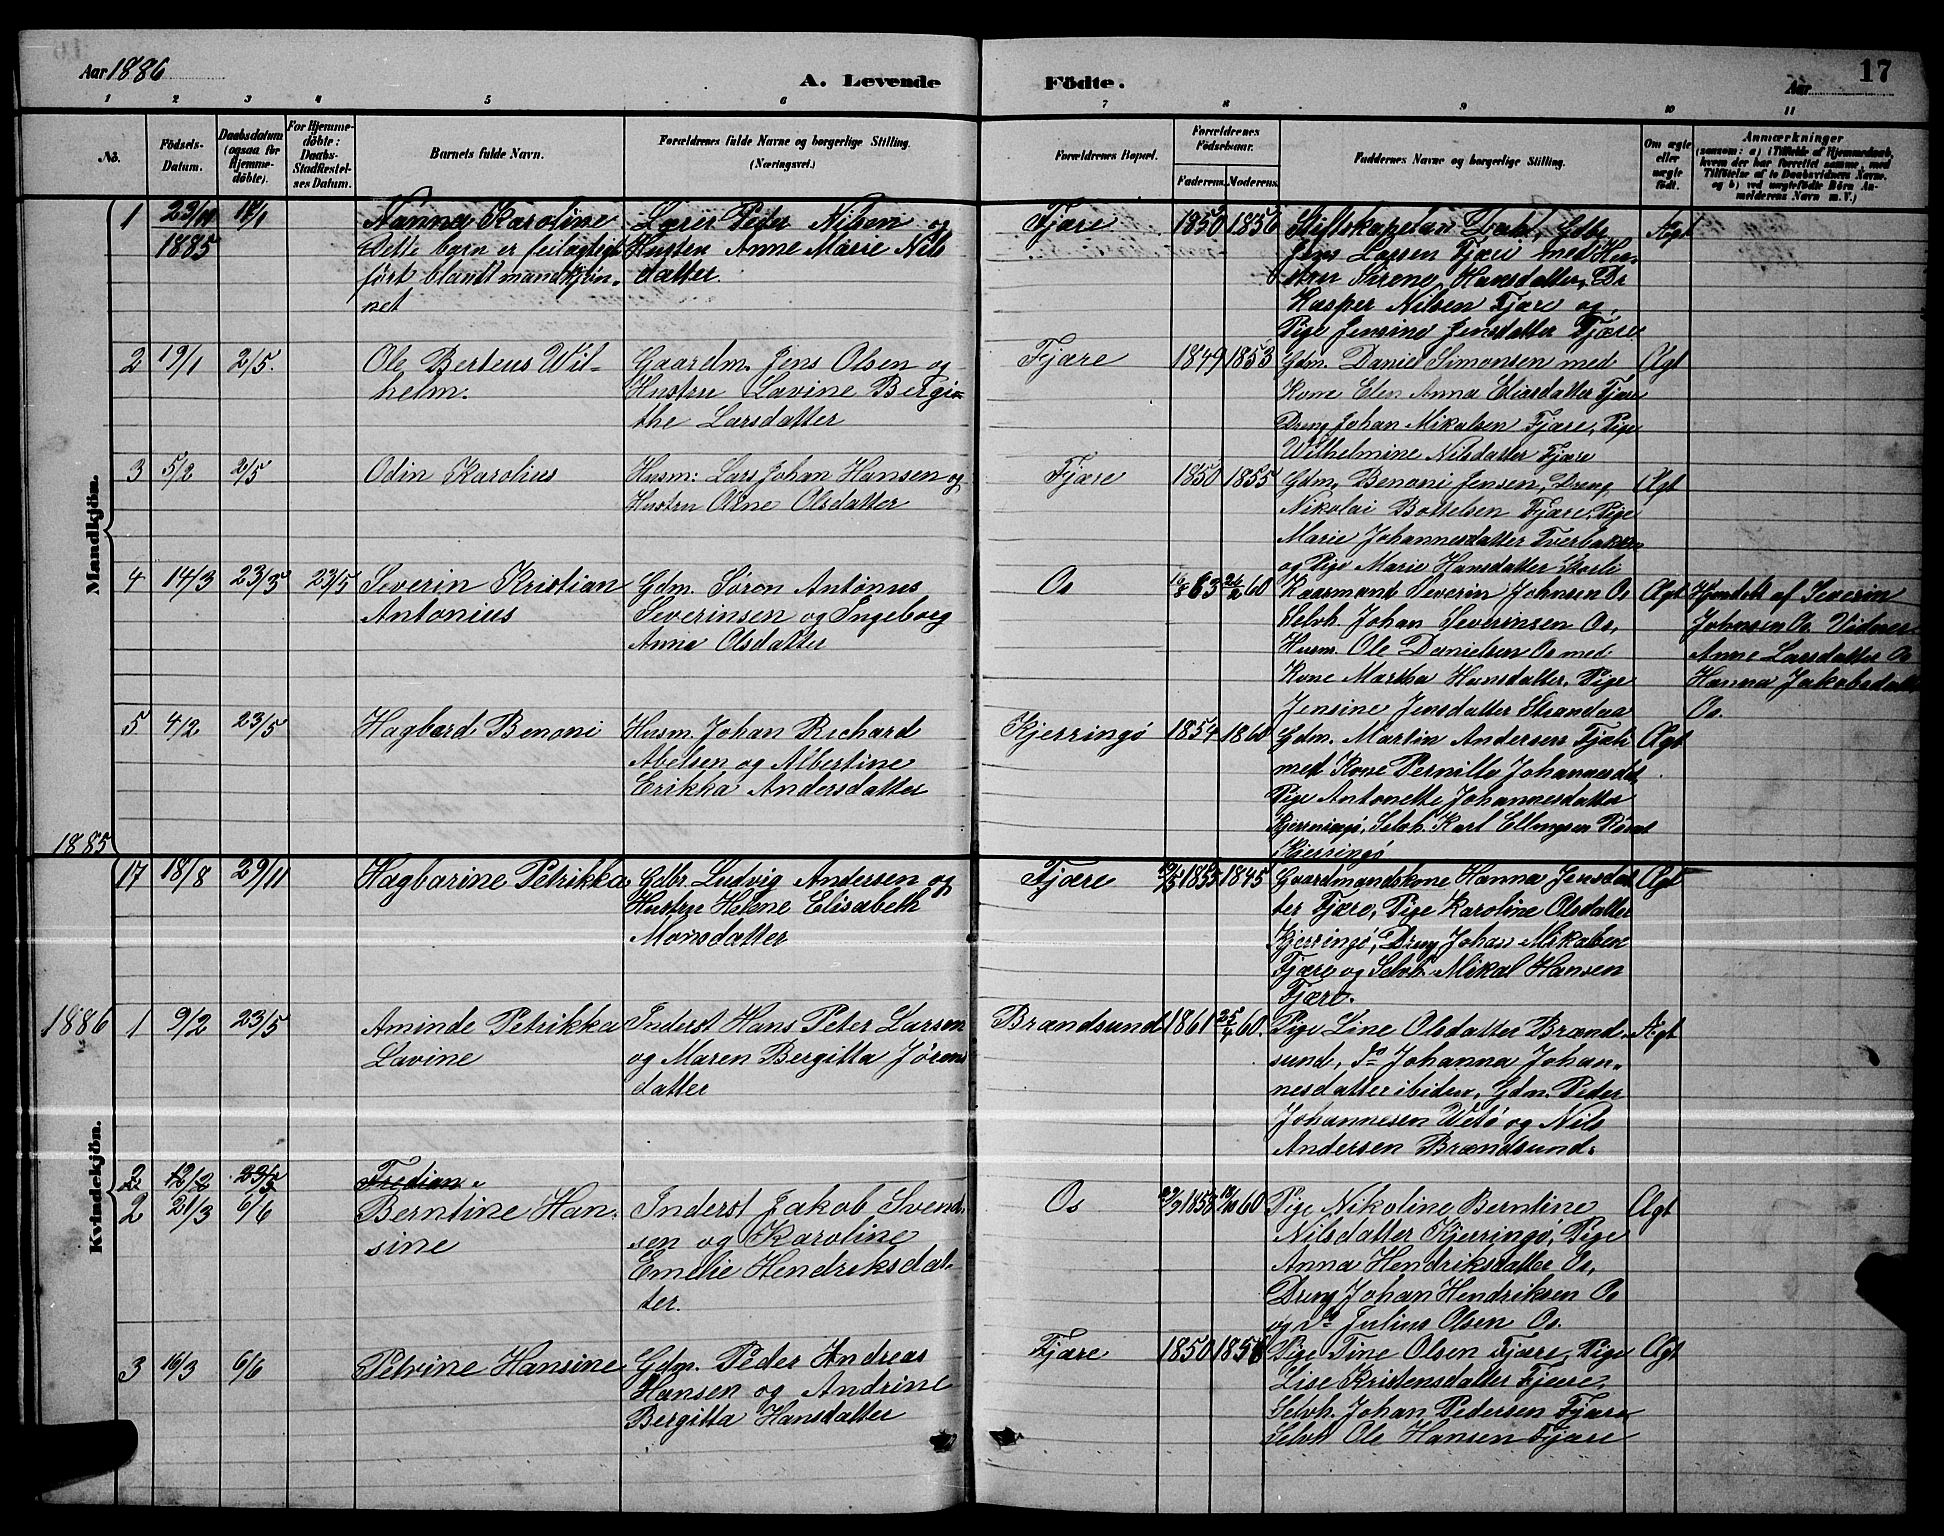 Aar 1886
A. Levende
Födte.
Aar
17
1 2 3 4 5 6 7 8 9 10 11
No.
Födsels-
Datum.
Daabsdatum
(ogsaa for
Hjemme-
döbte).
For Hjemme-
döbte:
Daabs-
Stadfæstel-
ses Datum.
Barnets fulde Navn.
Forældrenes fulde Navne og borgerlige Stilling.
(Næringsvei.)
Forældrenes Bopæl.
Forældrenes
Födselsaar.
Faderens.
Moderens.
Faddernes Navne og borgerlige Stilling.
Om ægte
eller
uægte
födt.
Anmærkninger
(saasom: a) i Tilfælde af Hjemmedaab,
hvem der har forrettet samme, med
Tilföielse af to Daabsvidners Navne,
og b) ved uægtefödte Börn An-
melderens Navn m. V.)
Mandkjön.
1 23/11 1885
Nanna Karoline
Dette barn er feilagtigt
ført blandt mandkjøn-
net
Lærer Peder Nilsen og
Hustru Anne Marie Nils
datter.
Fjære 1850 1856
Jens Larsen Fjære med Hu-
stru Sirene Hansdatter,
Kasper Nilsen Fjære og
Pige Jensine Jensdatter Fjære
Ægt
2 19/1 2/5.
Ole Berteus Wil-
helm.
Gaardm. Jens Olsen og
Hustru Lavine Bergi-
the Larsdatter
Fjære 1849 1853
Gdm. Daniel Simonsen med
Kone Elen Anna Eliasdatter Fjære
Dreng Johan Mikalsen Fjære, Pige
Wilhelmine Nilsdatter Fjære
Ægt
3 5/2 2/5
Odin Karolius
Husm: Lars Johan Hansen og
Hustru Oline Olsdatter
Fjære 1850 1855
Gdm. Benoni Jensen, Dreng
Nikolai Bottelsen Fjære, Pige
Marie Johannesdatter Tverbakken
og Pige Marie Hansdatter Storli
Ægt
4 14/3 23/5 23/5
Severin Kristian
Antonius
Gdm. Sören Antonus
Severinsen og Ingeborg
Anna Olsdatter
Os 63 60
Kaarmand Severin Johnsen Os
Selvh. Johan Severinsen Os,
Husm. Ole Danielsen Os med
Kone Martha Hansdatter, Pige
Jensine Jensdatter Strandaa
Ægt
Hjemdøbt af Severin
Johnsen Os. Vidner
Anne Larsdatter Os
Hanna Jakobsdatter
Os.
5 4/2 23/5
Hagbard Benoni
Husm. Johan Richard
Abelsen og Albertine
Erikka Andersdatter
Kjerringö 1854 1860
Gdm. Martin Andersen
med Kone Pernilla Johannesdt,
Pige Antonette Johannesdatter
Kjerringö, Selvh. Karl Ellingsen
Kjerringö
Ægt
1885
17 18/8 29/11
Hagbarine Petrikka
Gdbr. Ludvig Andersen og
Hustru Helene Elisabeth
Monsdatter
Fjære 1845
Gaardmandskone Hanna Jensdat
ter Fjære, Pige Karoline Olsdatter
Kjerringö, Dreng Johan Mikalsen
Fjære og Selvh. Mikal Hansen
Fjære.
Ægt
Kvindekjön.
1886
1 9/2 23/5
Aminde Petrikka
Lavine
Inderst Hans Peter Larsen
og Maren Bergitta Jörens
datter
Brændsund 1861 25/4 60.
Pige Line Olsdatter Brænd-
sund, do Johanna Johan-
nesdatter ibiden, Gdm. Peder
Johannesen Wetö og Nils
Andersen Brændsund.
Ægt
2 12/2 23/5
Fredian
2 21/3 6/6
Berntine Han-
sine
Inderst Jakob Svend-
sen og Karoline
Emelie Hendriksdat-
ter.
Os 1858 60
Pige Nikoline Berntine
Nilsdatter Kjerringö, Pige
Anna Hendriksdatter Os,
Dreng Johan Hendriksen Os
og do Julius Olsen Os.
Ægt
3 16/3 6/6
Petrine Hansine
Gdm. Peder Andreas
Hansen og Andrine
Bergitta Hansdatter
Fjære 1850 1856
Pige Tine Olsen Fjære, Pige
Lise Kristensdatter Fjære
Selvh. Johan Pedersen Fjære
Selvh Ole Hansen Fjære
Ægt